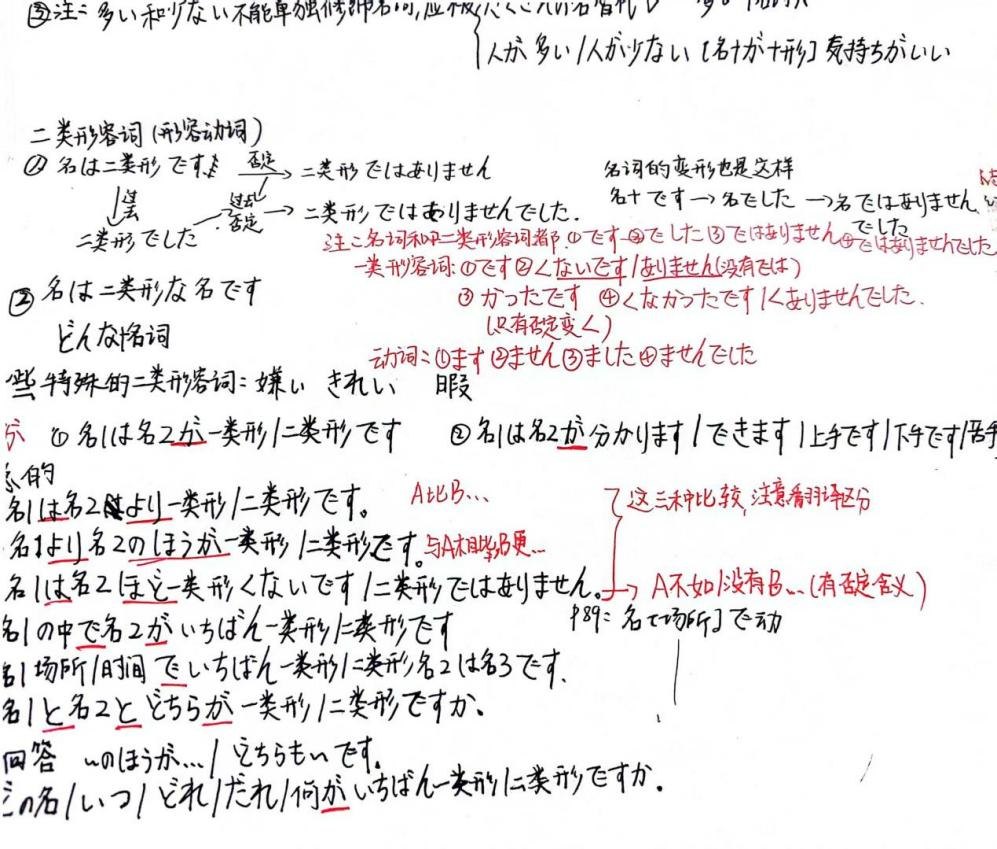 ③注：多い和少ない不能单独修饰名词,应
人が多い/人が少ない【名+が+形】気持ちがいい
二类形容词(形容动词)
① 名は二类形です 否定→ 二类形ではありません
名词的变形也是这样
过去 过去否定→ 二类形ではありませんでした.
名+です→名でした→名ではありません
二类形でした
でした
注:名词和二类形容词都①です②でした③ではありません④ではありませんでした
一类形容词:①です②くないです/ありません(没有では)
② 名は二类形な名です
③かったです ④くなかったです/くありませんでした.
(只有否定变く)
どんな+名词
动词:①ます②ません③ました④ませんでした
些特殊的二类形容词:嫌い きれい 暇
① 名1は名2が一类形/二类形です ② 名1は名2が分かります/できます/上手です/下手です/苦手
的
名1は名2より一类形/二类形です。 A比B...
这三种比较,注意看翻译区分
名1より名2のほうが一类形/二类形です。与A相比B更...
名1は名2ほど一类形くないです/二类形ではありません。→ A不如/没有B...(有否定含义)
名1の中で名2がいちばん一类形/二类形です
P89: 名【场所】で动
名1场所/时间でいちばん一类形/二类形名2は名3です.
名1と名2とどちらが一类形/二类形ですか。
回答 ~のほうが.../どちらも~です。
の名/いつ/どれ/だれ/何がいちばん一类形/二类形ですか.